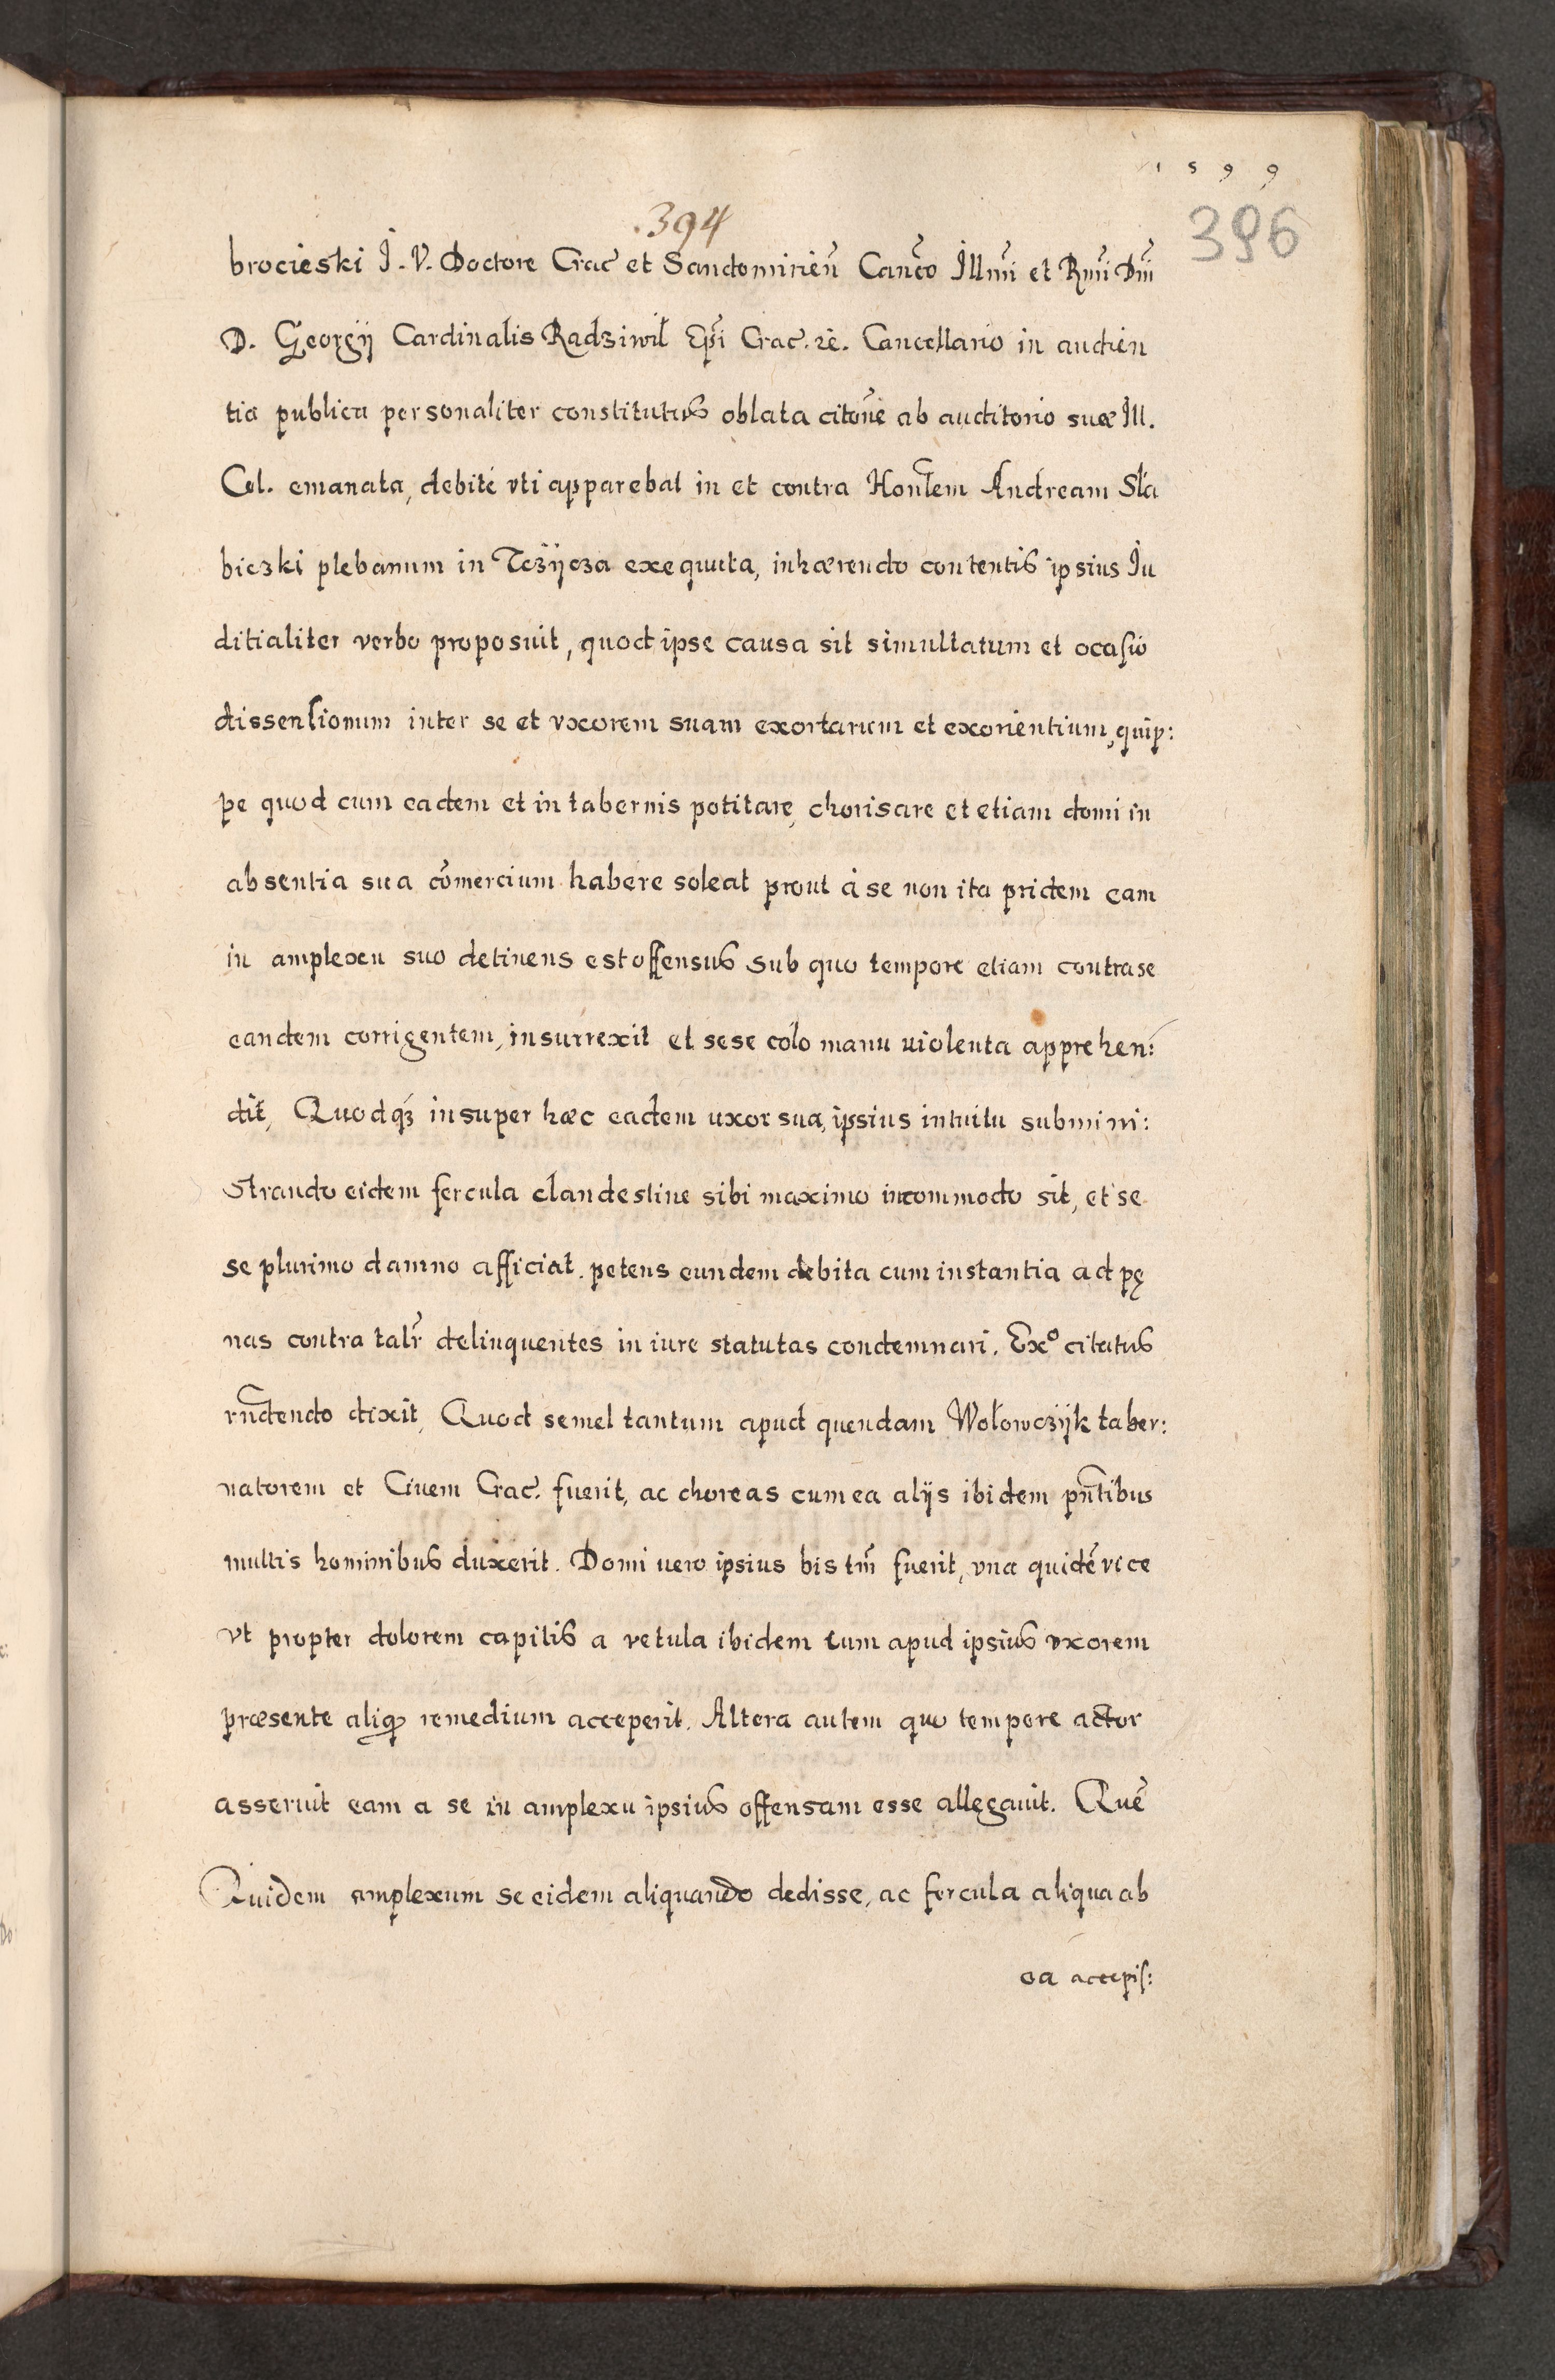 1599
394
396
brocieski J. V. Doctore Crac̃ et Sandomirien̄ Can̄co Illm̄i et Rm̄i Dn̄i
D. Georgij Cardinalis Radziwil Ep̄i Crac. zc̄. Cancellario in audien
tia publica personaliter constitutus oblata citōne ab auditorio suæ Ill.
Cel. emanata, debite vti apparebat in et contra Honl̄em Andream Sla
biczki plebanum in Tczÿcza exequuta, inhærendo contentis ipsius Ju
ditialiter verbo proposuit, quod ipse causa sit simultatum et ocasio
dissensionum inter se et vxorem suam exortarum et exorientium, quip:
pe quod cum eadem et in tabernis potitare, chorisare et etiam domi in
absentia sua cōmercium habere soleat prout à se non ita pridem eam
in amplexu suo detinens est offensus sub quo tempore etiam contra se
eandem corrigentem, insurrexit et sese colo manu violenta apprehen:
dit, Quodq₃ insuper hæc eadem uxor sua, ipsius intuitu submini:
strando eidem fercula clandestine sibi maximo incommodo sit, et se
se plurimo damno afficiat. petens eundem debita cum instantia ad pę
nas contra talr̄ delinquentes in iure statutas condemnari. Exº citatus
rn̄dendo dixit, Quod semel tantum apud quendam Wołowczÿk taber:
natorem et Ciuem Crac̃. fuerit, ac choreas cum ea alijs ibidem pn̄tibus
multis hominibus duxerit. Domi uero ipsius bis tm̄ fuerit, vna quidē vice
vt propter dolorem capitis a vetula ibidem tum apud ipsius vxorem
præsente aliq̃ remedium acceperit. Altera autem quo tempore actor
asseruit eam a se in amplexu ipsius offensam esse allęgauit. Quē
Quidem amplexum se eidem aliquando dedisse, ac fercula aliqua ab
ea accepis: